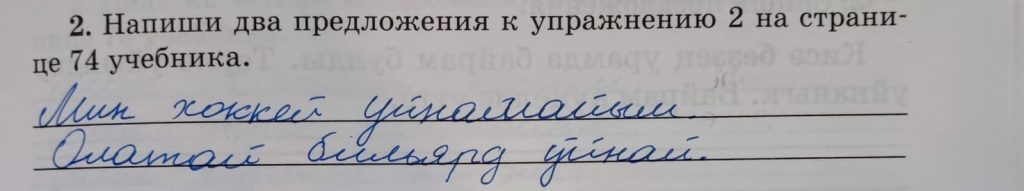 2. Напиши два предложения к упражнению 2 на страни-
це 74 учебника.
Мин хоккей уйнамайым.
Олатай бильярд уйнай.